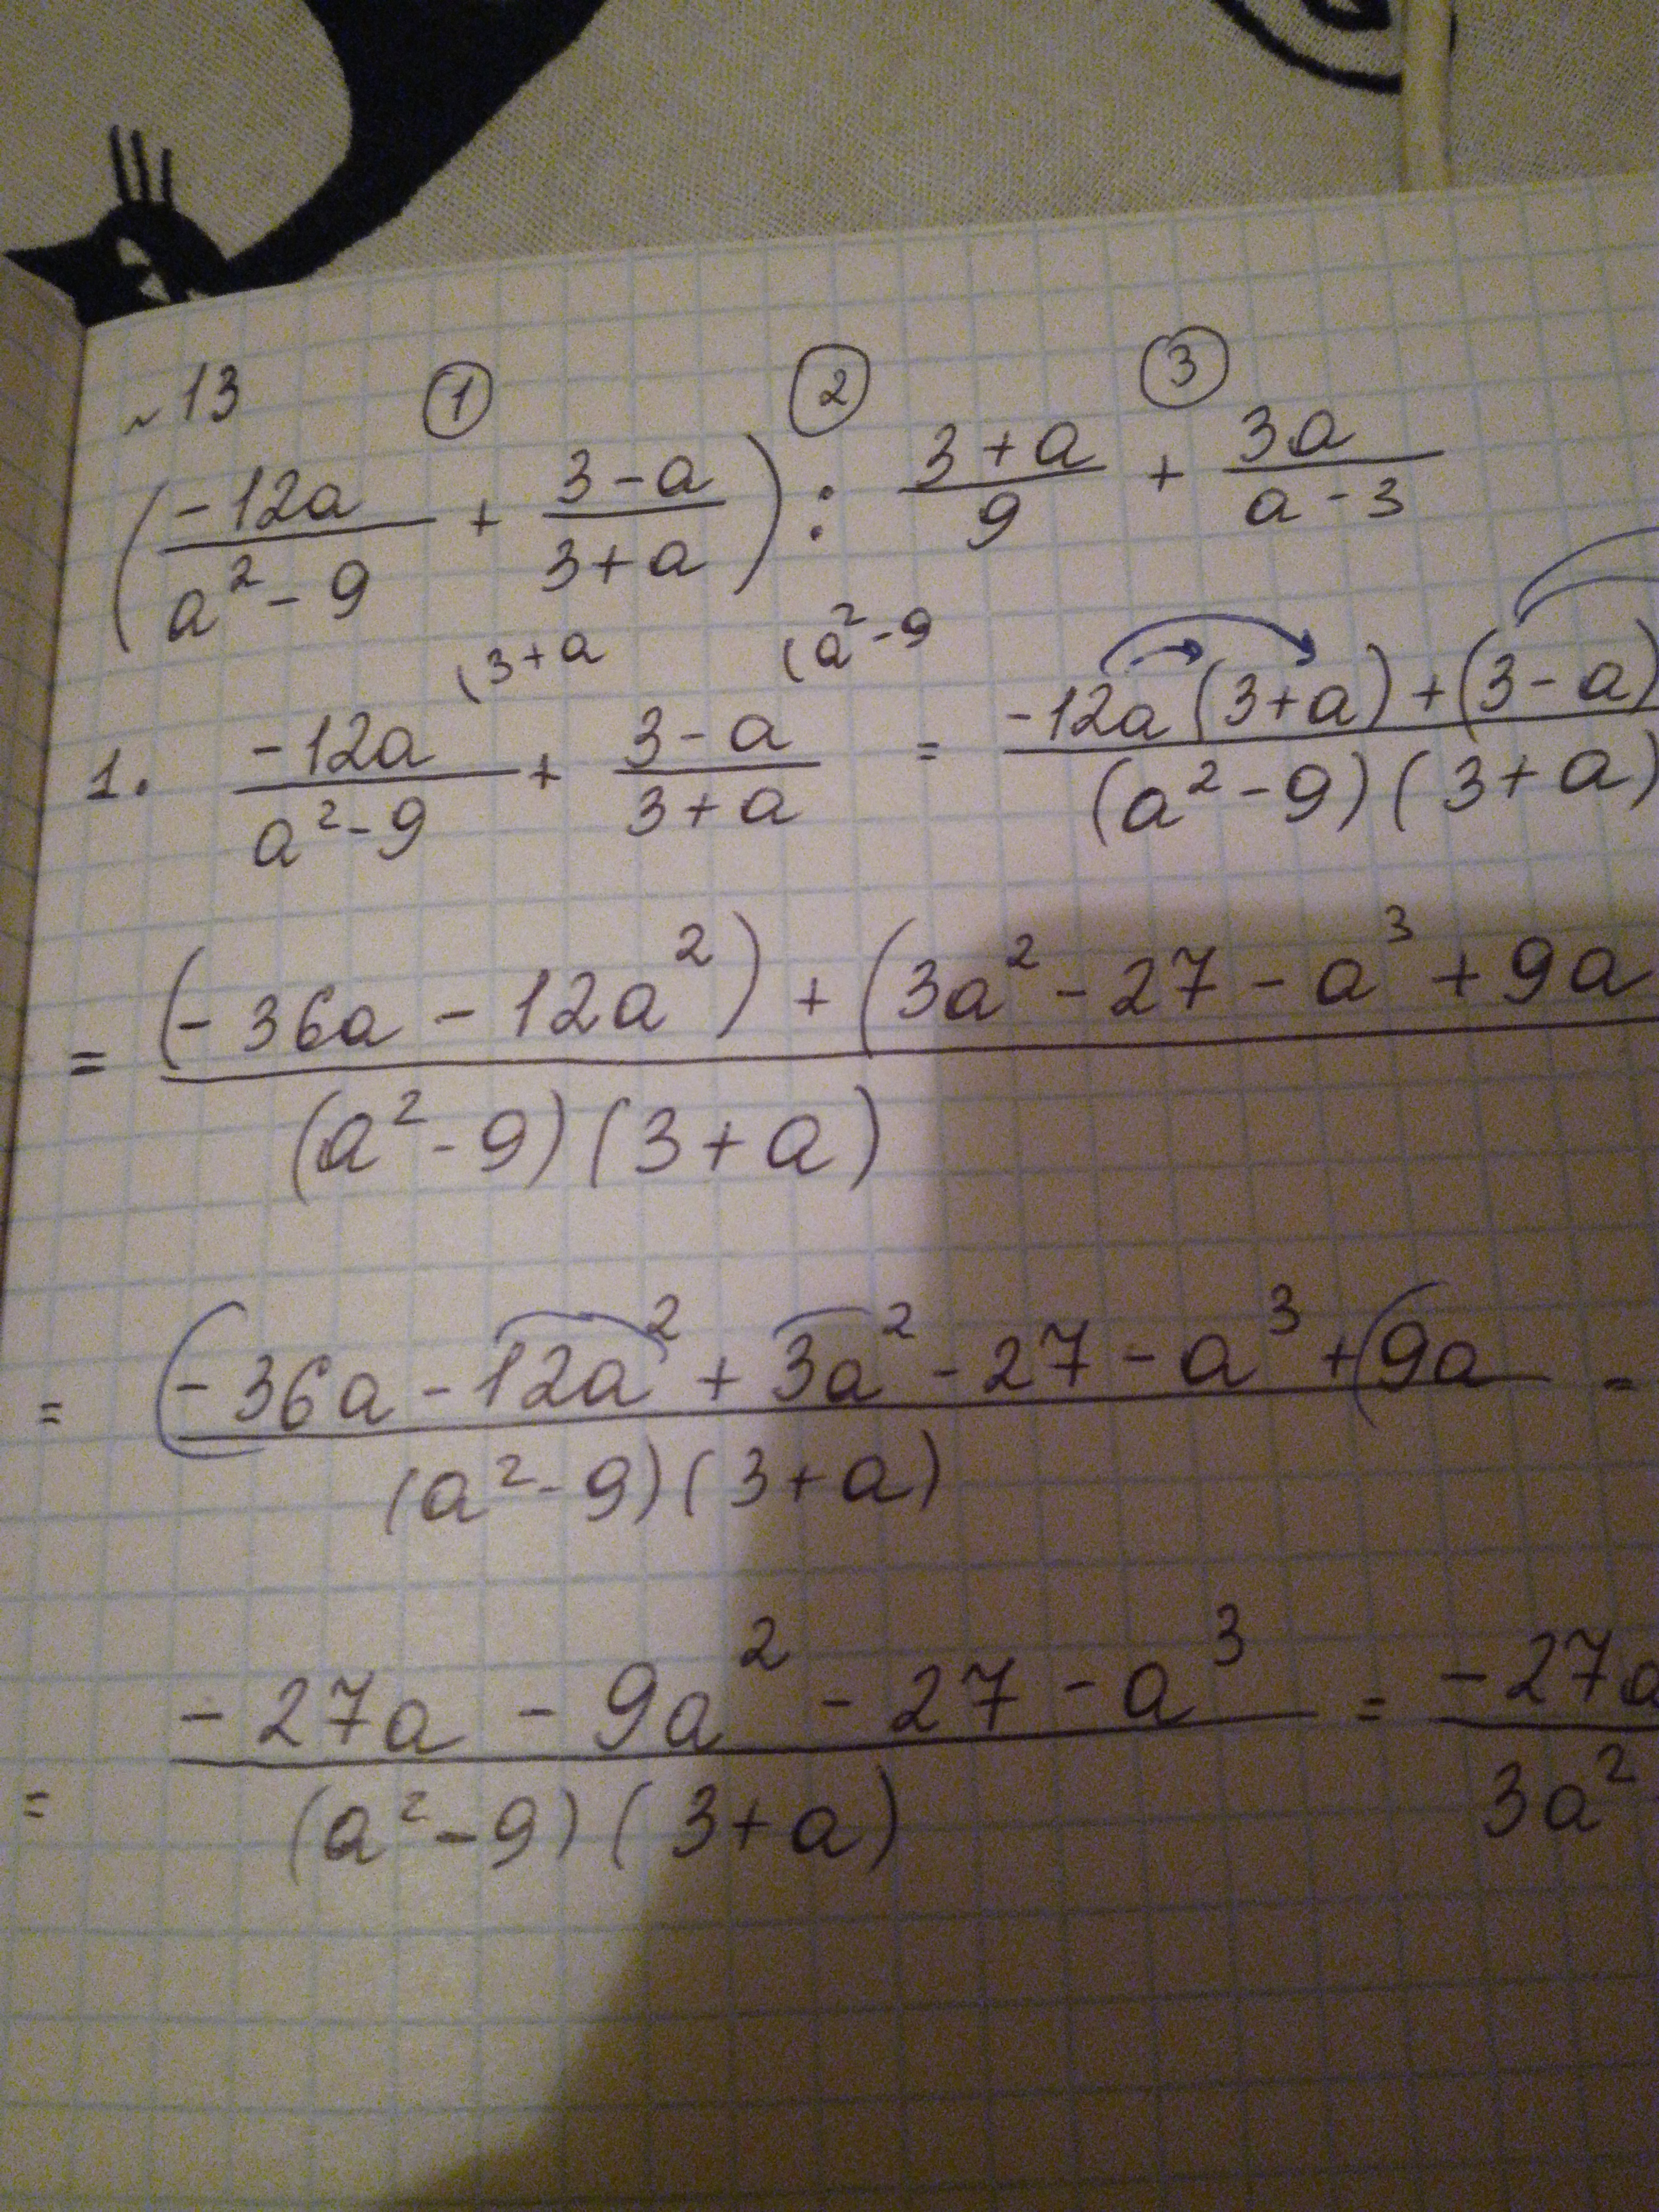 ~13 ① ② ③
(-12a/(a²-9) + (3-a)/(3+a)) : (3+a)/9 + 3a/(a-3)
(3+a (a²-9
1. -12a/(a²-9) + (3-a)/(3+a) = (-12a(3+a)+(3-a)/((a²-9)(3+a)
= ((-36a-12a²)+(3a²-27-a³+9a/((a²-9)(3+a))
= (-36a-12a²+3a²-27-a³+(9a/((a²-9)(3+a)) =
= (-27a-9a²-27-a³)/((a²-9)(3+a)) = -27a/3a²